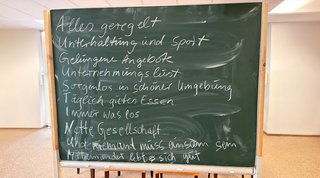 Alles geregelt
Unterhaltung und Sport
Gelungene Angebote
Unternehmungslust
Sorgenlos in schöner Umgebung
Täglich gutes Essen
Immer was los
Nette Gesellschaft
Und niemand muss einsam sein
Miteinander lebt es sich gut